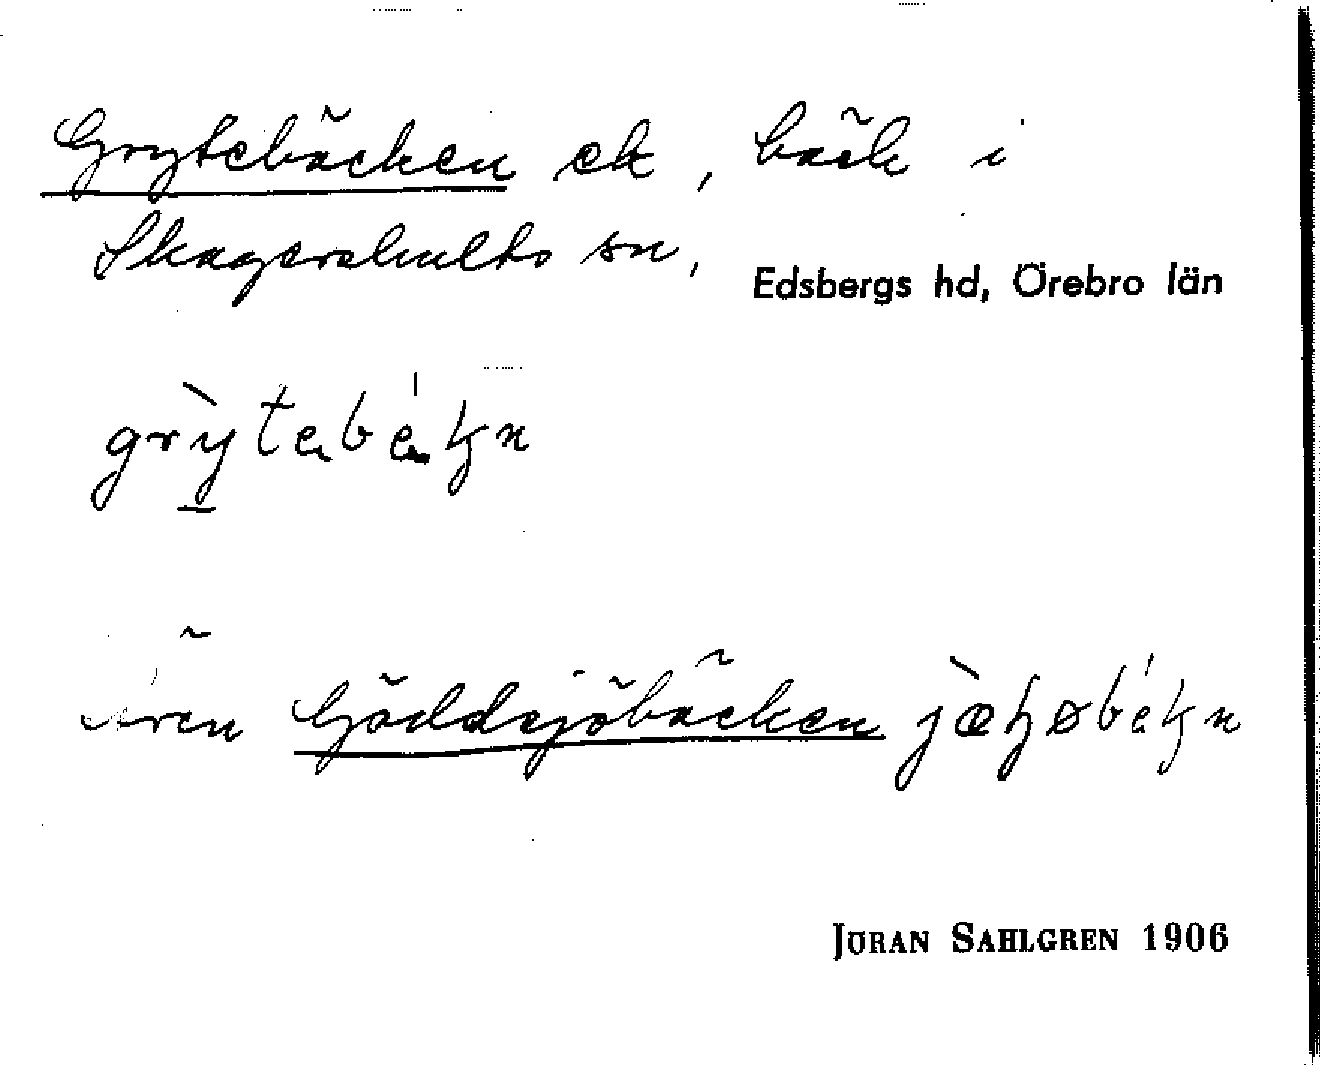 Grytebäcken ek, bäck i
Skagershults sn,
Edsbergs hd, Örebro län
grytebekn
även Gäddsjöbäcken
JÖRAN SAHLGREN 1906